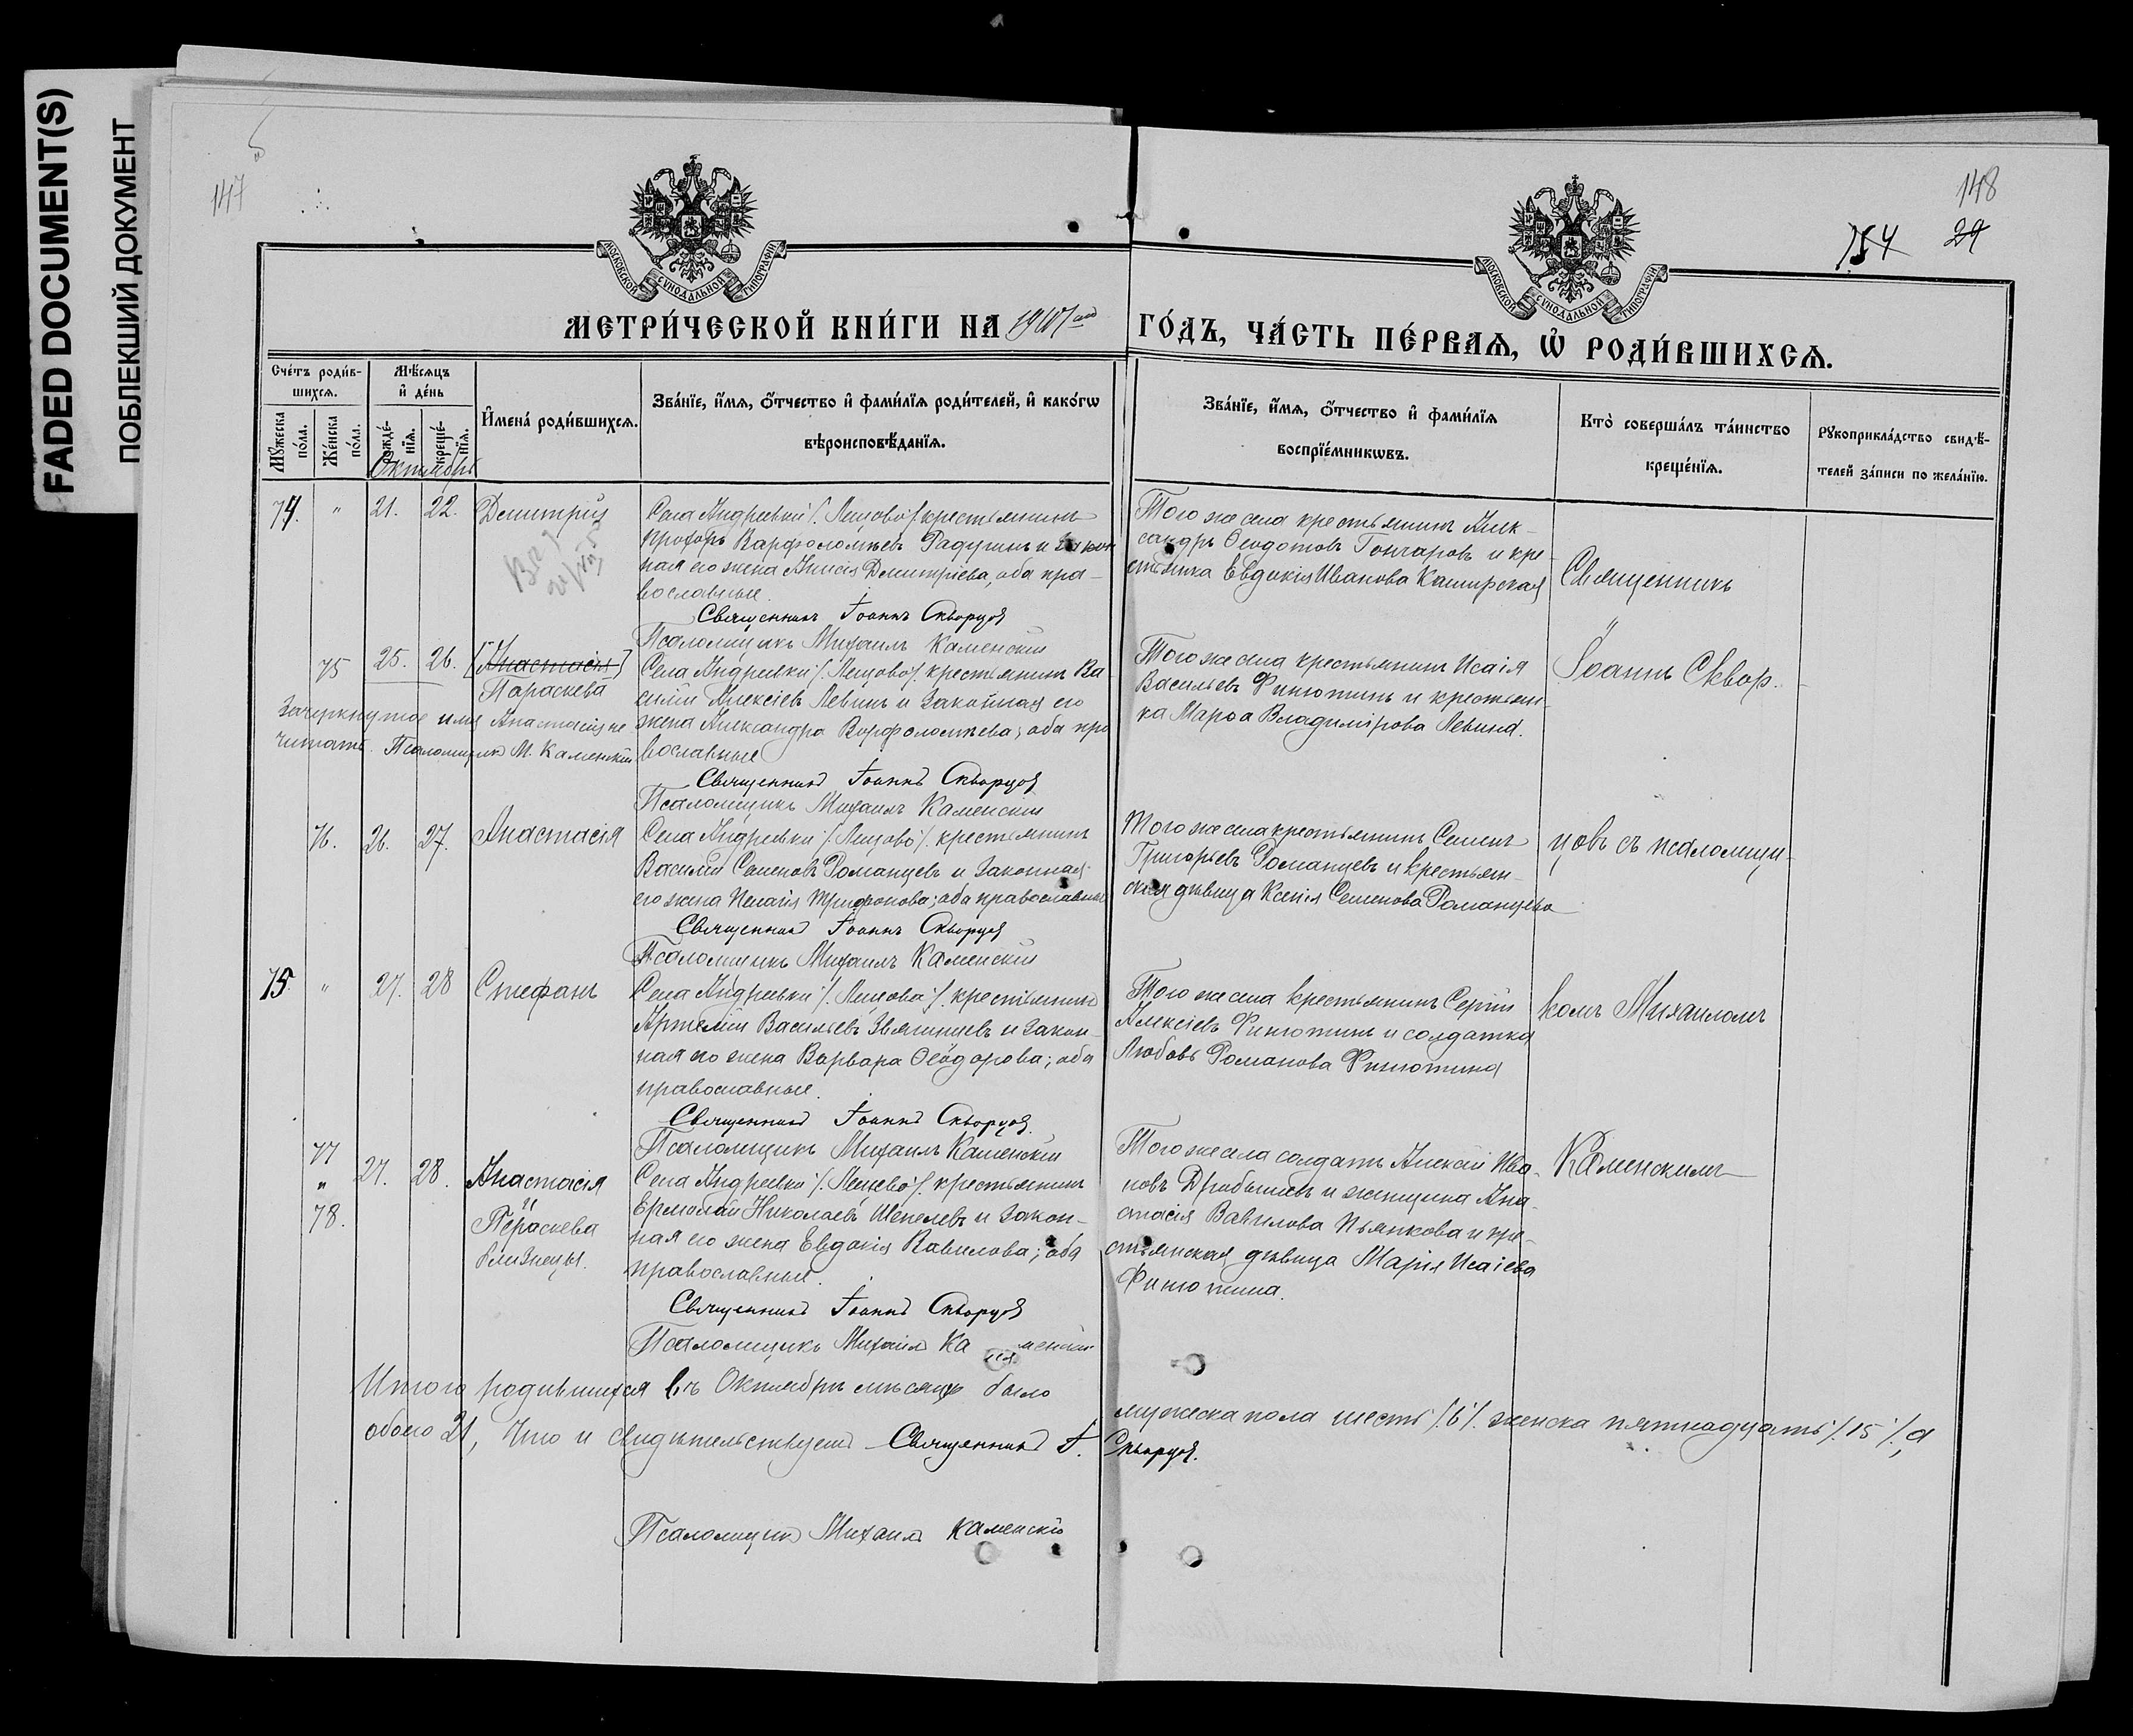 FADED DOCUMENT(S)
ПОБЛЕКШИЙ ДОКУМЕНТ
147
148
154 29
МОСКОВСКОЙ СѴНОДАЛЬНОЙ ТИПОГРАФІИ
МОСКОВСКОЙ СѴНОДАЛЬНОЙ ТИПОГРАФІИ
МЕТРИ́ЧЕСКОЙ КНИ́ГИ НА 1907ый ГО́ДЪ, ЧА́СТЬ ПЕ́РВАѦ, Ѡ҆ РОДИ́ВШИХСѦ.
Сче́тъ роди́в-
шихсѧ.
Мꙋ́жеска по́ла.
Же́нска по́ла.
Мѣ́сѧцъ
и҆ де́нь
рожде́-
нїѧ.
креще́-
нїѧ.
И҆мена̀ роди́вшихсѧ.
Зва́нїе, и҆́мѧ, ѻ҆́тчество и҆ фами́лїѧ роди́телей, и҆ како́гѡ
вѣроисповѣ́данїѧ.
Зва́нїе, и҆́мѧ, ѻ҆́тчество и҆ фами́лїѧ
воспрїе́мникѡвъ.
Кто̀ соверша́лъ та́инство
креще́нїѧ.
Рꙋкоприкла́дство свидѣ́-
телей за́писи по жела́нїю.
Октябрь
74. " 21. 22. Димитрій
Села Андреевки /. Лещово /. крестьянинъ
Прохоръ Варфоломѣевъ Радугинъ и закон
ная его жена Анисія Димитріева, оба пра-
вославные.
Священникъ Іоаннъ Скворцов
Псаломщикъ Михаилъ Каменскій
Того же села крестьянинъ Алек-
сандръ Ѳеодотовъ Гончаровъ и кре-
стьянка Евдокія Иванова Каширская
Священникъ
75 25. 26. [Анастасія]
Параскева
Зачеркнутое имя Анастасія не
читать. Псаломщик М. Каменскій
Села Андреевки /. Лещово /. крестьянинъ Ва
силій Алексіевъ Левинъ и законная его
жена Александра Ворфоломѣева; оба пра
вославные
Священник Іоанн Скворцов
Псаломщикъ Михаилъ Каменскій
Того же села крестьянинъ Исаія
Васильевъ Финютинъ и крестьян-
ка Марѳа Владимірова Левина.
Іоаннъ Сквор-
76. 26. 27. Анастасія
Села Андреевки /. Лещово /. крестьянинъ
Василій Семеновъ Романцевъ и законная
его жена Пелагія Трифонова; оба православные
Священник Іоаннъ Скворцов
Псаломщикъ Михаилъ Каменскій
Того же села крестьянинъ Семенъ
Григорьевъ Романцевъ и крестьян-
ская дѣвица Ксенія Семенова Романцева
цовъ съ псаломщи-
75. " 27. 28 Стефанъ
Села Андреевки /. Лещова /. крестьянинъ
Артемій Васильевъ Звягинцевъ и закон-
ная его жена Варвара Ѳеодорова; оба
православные.
Священник Іоанн Скворцов.
Псаломщикъ Михаилъ Каменскій
Того же села крестьянинъ Сергій
Алексіевъ Финютинъ и солдатка
Любовь Романова Финютина
комъ Михаиломъ
77
" 27. 28. Анастасія
и
78. Параскева
близнецы.
Села Андреевки /. Лещево /. крестьянинъ
Ермолай Николаевъ Шепелевъ и закон-
ная его жена Евдокія Вавилова; оба
православные.
Священник Іоанн Скворцов
Псаломщикъ Михаил Каменскій
Того же села солдатъ Алексій Ива-
новъ Дробышевъ и женщина Ана-
стасія Вавилова Пьянкова и кре-
стьянская дѣвица Марія Исаіева
Финютина.
Каменскимъ
Итого родившихся въ Октябрѣ мѣсяцѣ было мужеска пола шесть /. 6 /. женска пятнадцать /. 15 /., а
обоего 21, Что и свидѣтельствуемъ Священник І. Скворцов.
Псаломщик Михаил Каменскій